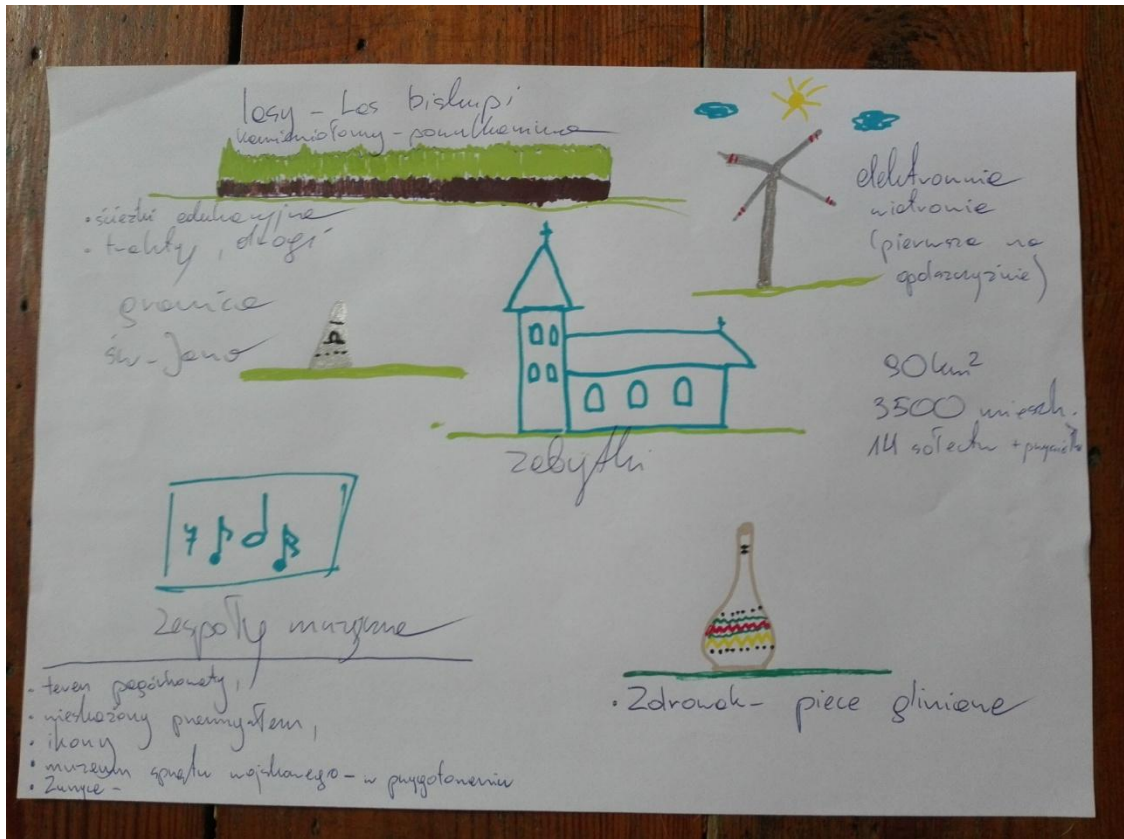 lasy - Las biskupi
kamieniołomy - powulkaniczne
• ścieżki edukacyjne
• trakty, drogi
elektrownie
wiatrowe
(pierwsze na
opolszczyźnie)
granica
św. Jana
90 km²
3500 mieszk.
14 sołectw + przysiółki
zabytki
zespoły muzyczne
• teren pagórkowaty,
• nieskażony przemysłem,
• ikony
• muzeum sprzętu wojskowego - w przygotowaniu
•
• Zdrowak - piece gliniane